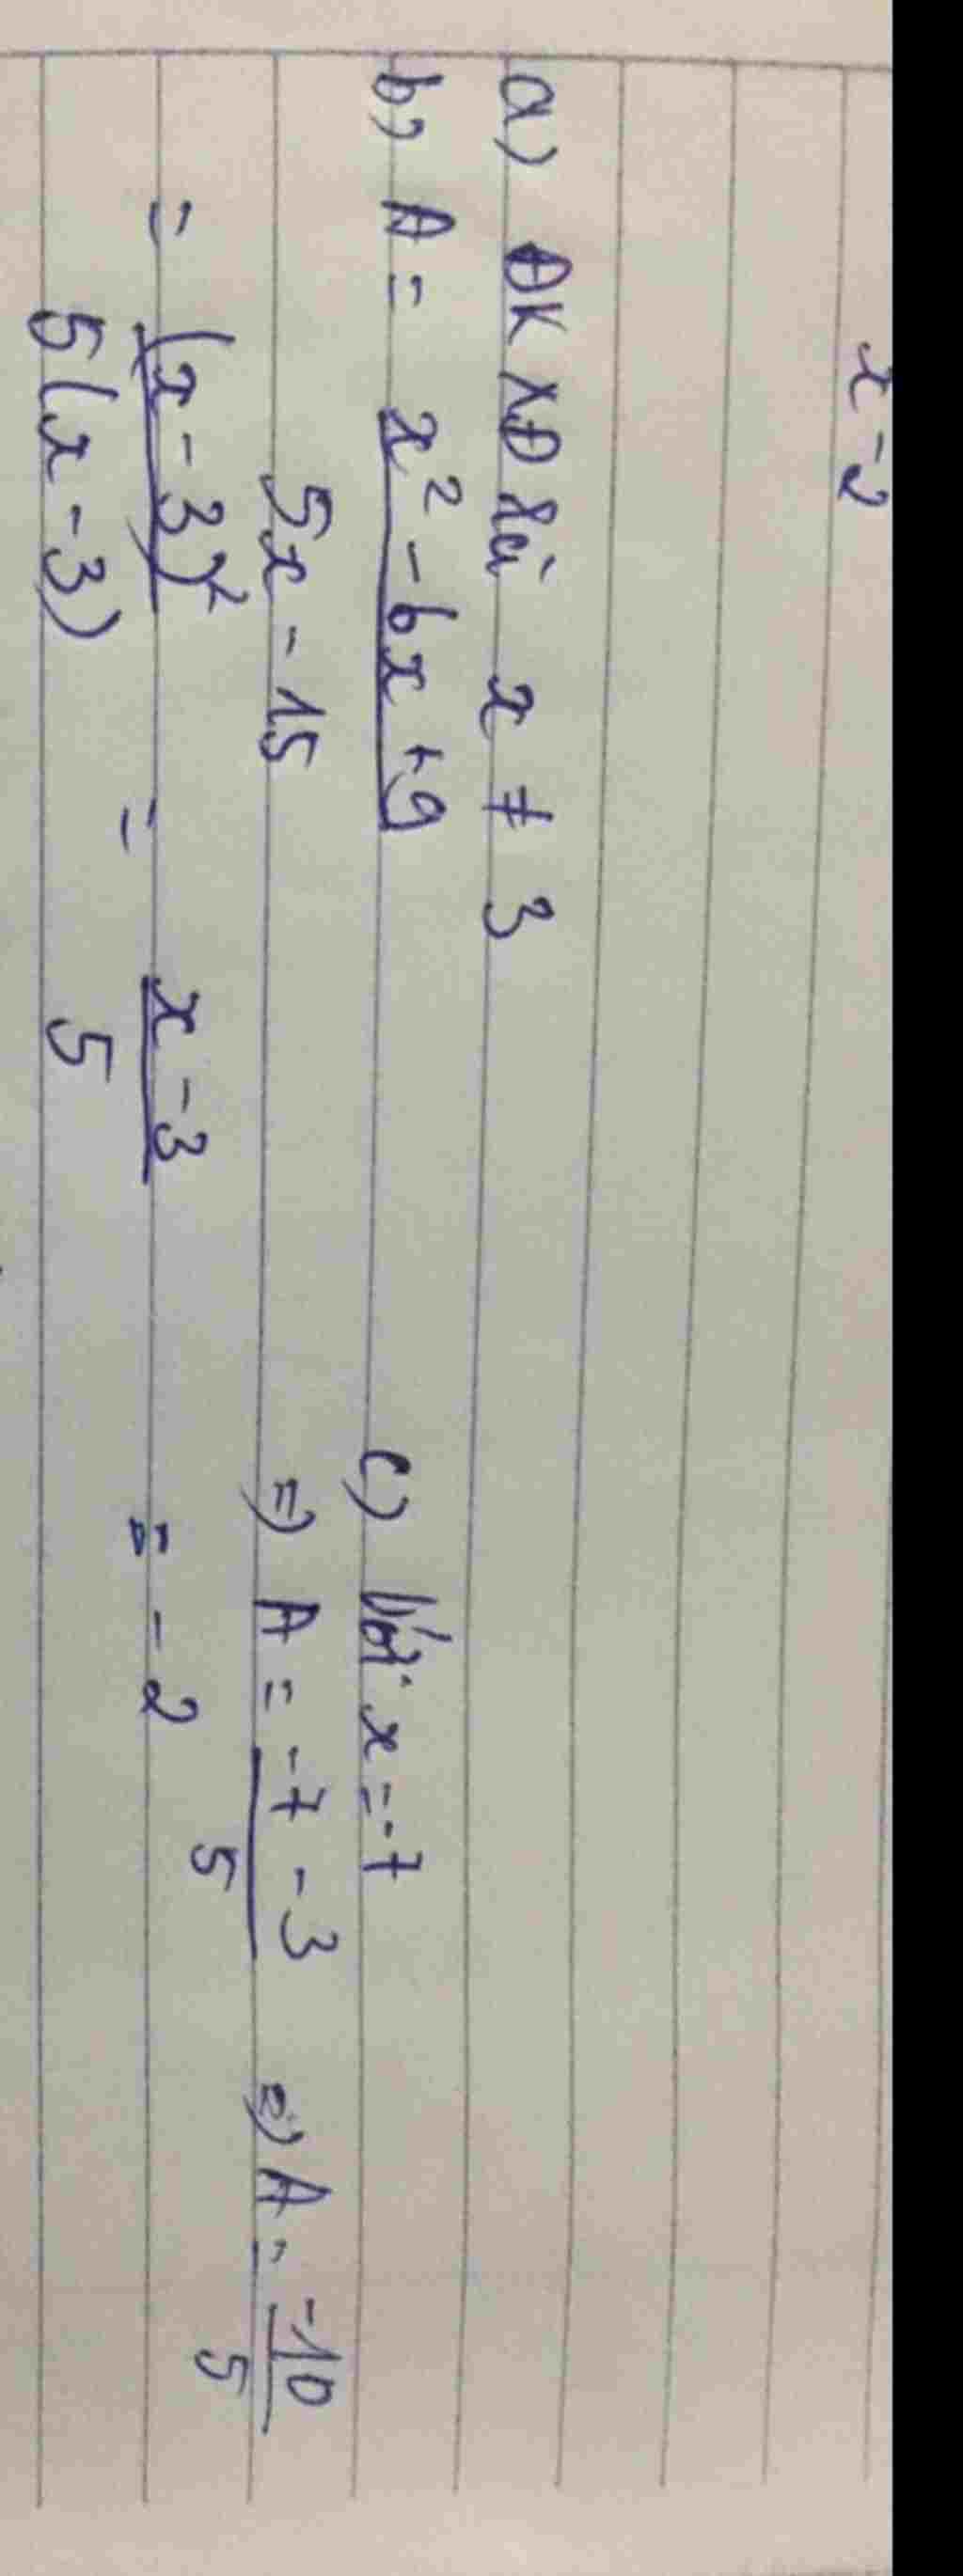 x - 2
a) ĐKXĐ là x ≠ 3
b) A = x² - 6x + 9 / 5x - 15
= (x - 3)² / 5(x - 3) = x - 3 / 5
c) Với x = -7
=) A = -7 - 3 / 5 =) A = -10 / 5
= -2